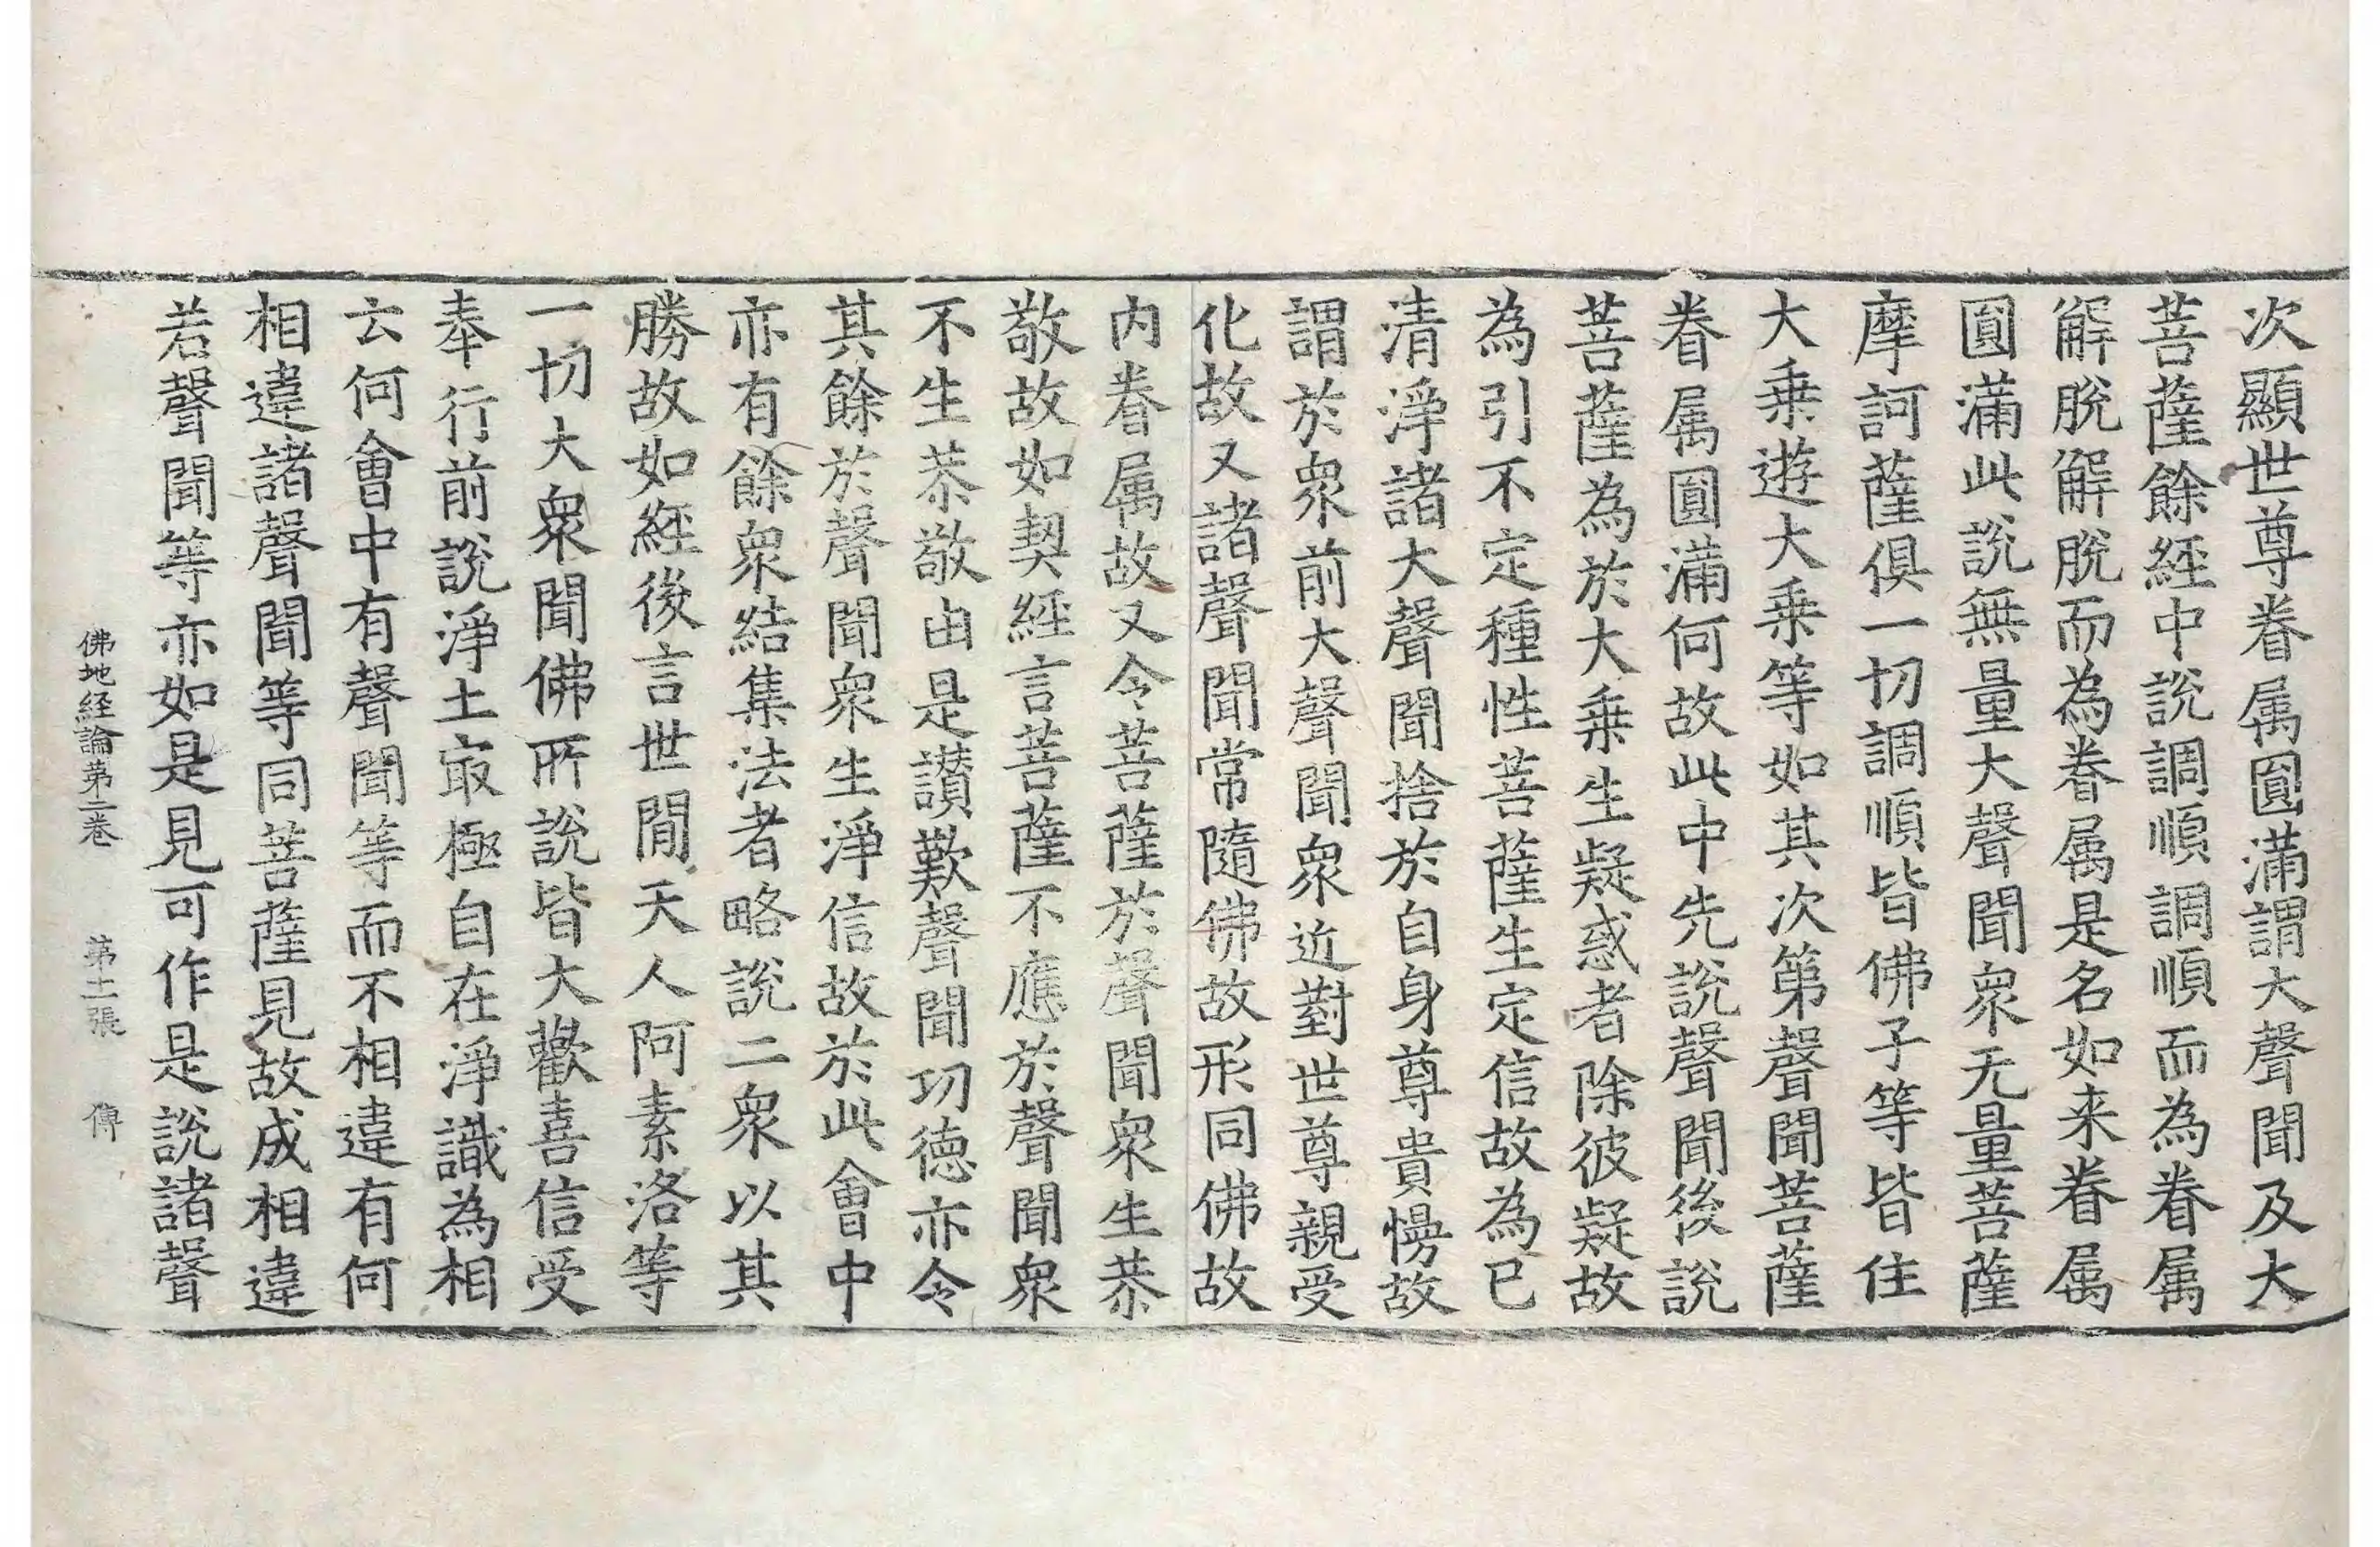 次顯世尊眷属圓滿謂大聲聞及大
菩薩餘經中說調順調順而為眷属
解脫解脫而為眷属是名如来眷属
圓滿此說無量大聲聞衆无量菩薩
摩訶薩俱一切調順皆佛子等皆住
大乗遊大乗等如其次第聲聞菩薩
眷属圓滿何故此中先說聲聞後說
菩薩為於大乗生疑惑者除彼疑故
為引不定種性菩薩生定信故為已
清淨諸大聲聞捨於自身尊貴慢故
謂於衆前大聲聞衆近對世尊親受
化故又諸聲聞常隨佛故形同佛故
内眷属故又令菩薩於聲聞衆生恭
敬故如契經言菩薩不應於聲聞衆
不生恭敬由是讚歎聲聞功德亦令
其餘於聲聞衆生淨信故於此會中
亦有餘衆結集法者略說二衆以其
勝故如經後言世閒天人阿素洛等
一切大衆聞佛所說皆大歡喜信受
奉行前說淨土冣極自在淨識為相
云何會中有聲聞等而不相違有何
相違諸聲聞等同菩薩見故成相違
若聲聞等亦如是見可作是說諸聲
佛地経論第二卷　第十二張　傳